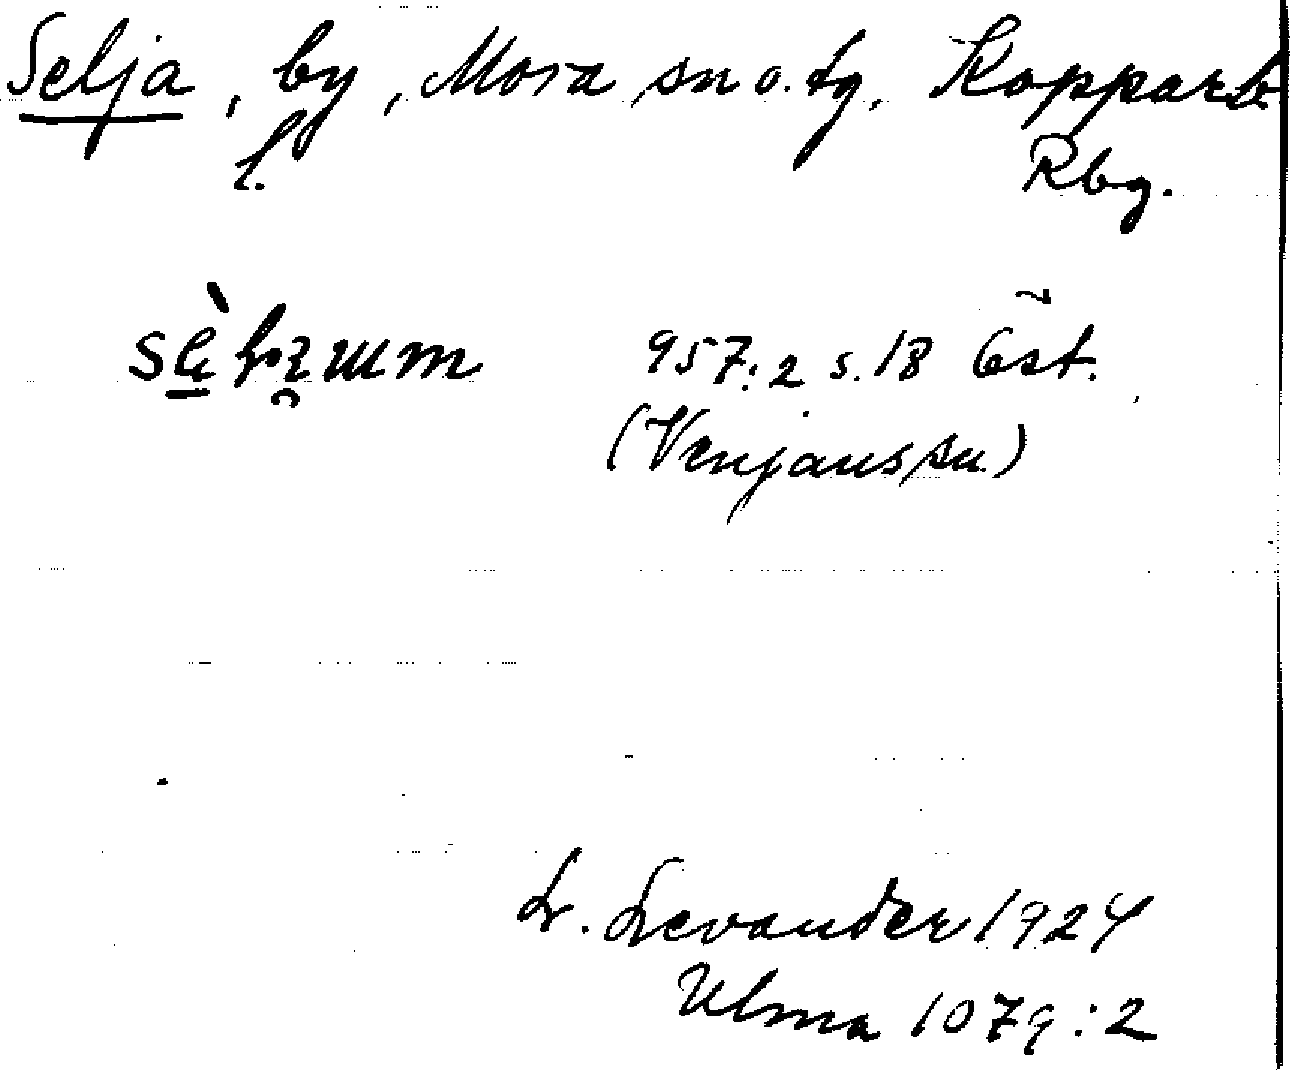 Selja, by, Mora sn o. tg, Kopparb.
l.
Rbg.
957:2 s. 18 Öst.
(Venjans sn)
L. Levander 1924
Ulma 1079:2